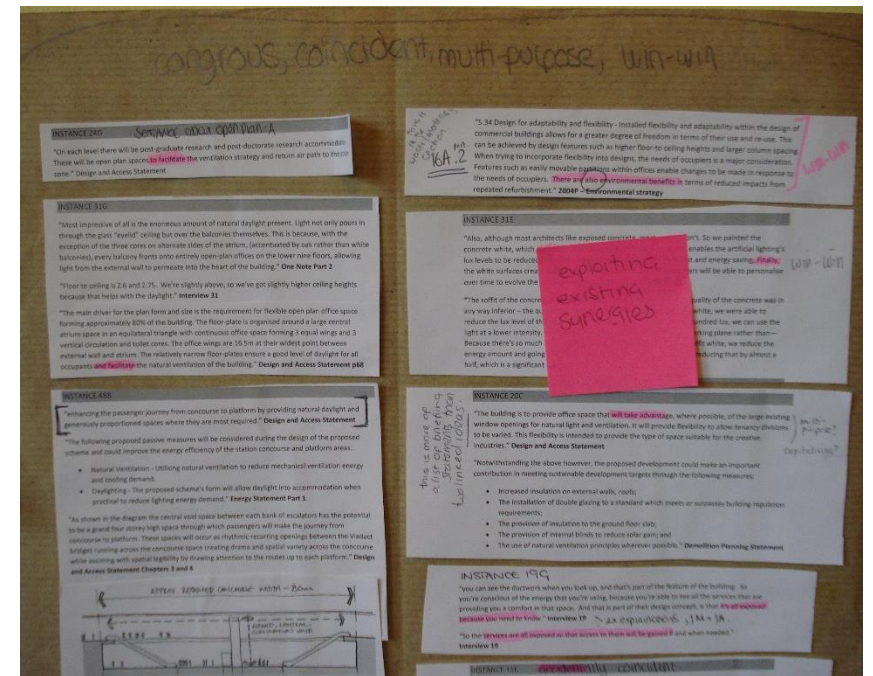 congrous, coincident, multi-purpose, win-win
INSTANCE 24G
"On each level there will be post-graduate research and post-doctorate research accommodation.
These will be open plan spaces to facilitate the ventilation strategy and return air path to the
zone." Design and Access Statement
INSTANCE 31G
"Most impressive of all is the enormous amount of natural daylight present. Light not only pours in
through the glass "eyelid" ceiling but over the balconies themselves. This is because, with the
exception of the three cores on alternate sides of the atrium, (accentuated by oak rather than white
balconies), every balcony fronts onto entirely open-plan offices on the lower nine floors, allowing
light from the external wall to permeate into the heart of the building." One Note Part 2
"Floor to ceiling is 2.6 and 2.75. We're slightly above, so we've got slightly higher ceiling heights
because that helps with the daylight." Interview 31
"The main driver for the plan form and size is the requirement for flexible open plan office space
forming approximately 80% of the building. The floor-plate is organised around a large central
atrium space in an equilateral triangle with continuous office space forming 3 equal wings and 3
vertical circulation and toilet cores. The office wings are 16.5m at their widest point between
external wall and atrium. The relatively narrow floor-plates ensure a good level of daylight for all
occupants and facilitate the natural ventilation of the building." Design and Access Statement p68
INSTANCE 48B
"enhancing the passenger journey from concourse to platform by providing natural daylight and
generously proportioned spaces where they are most required." Design and Access Statement
"The following proposed passive measures will be considered during the design of the proposed
scheme and could improve the energy efficiency of the station concourse and platform areas:
• Natural Ventilation - Utilising natural ventilation to reduce mechanical ventilation energy
and cooling demand.
• Daylighting - The proposed scheme's form will allow daylight into accommodation when
practical to reduce lighting energy demand." Energy Statement Part 1
"As shown in the diagram the central void space between each bank of escalators has the potential
to be a grand four storey high space through which passengers will make the journey from
concourse to platform. These spaces will occur as rhythmic recurring openings between the Viaduct
Bridges running across the concourse space creating drama and spatial variety across the concourse
while assisting with spatial legibility by drawing attention to the routes up to each platform." Design
and Access Statement Chapters 3 and 4
16A.2
"5.34 Design for adaptability and flexibility - Installed flexibility and adaptability within the design of
commercial buildings allows for a greater degree of freedom in terms of their use and re-use. This
can be achieved by design features such as higher floor-to ceiling heights and larger column spacing.
When trying to incorporate flexibility into designs, the needs of occupiers is a major consideration.
Features such as easily movable partitions within offices enable changes to be made in response to
the needs of occupiers. There are also environmental benefits in terms of reduced impacts from
repeated refurbishment." 2004P – Environmental strategy
win-win
INSTANCE 31E
"Also, although most architects like exposed concrete, don't. So we painted the
concrete white, which enables the artificial lighting's
lux levels to be reduced and energy saving. Finally,
the white surfaces crea ts will be able to personalise
over time to evolve the
win-win
exploiting
existing
synergies
"The soffit of the concre quality of the concrete was in
any way inferior – the white, we were able to
reduce the lux level of the hundred lux, we can use the
light at a lower intensity. king plane rather than—
Because there's so much white, we reduce the
energy amount and going reducing that by almost a
half, which is a significant
this is more of
a list of briefing
statements than
two linked ideas.
INSTANCE 20C
"The building is to provide office space that will take advantage, where possible, of the large existing
window openings for natural light and ventilation. It will provide flexibility to allow tenancy divisions
to be varied. This flexibility is intended to provide the type of space suitable for the creative
industries." Design and Access Statement
multi-
purpose?
capitalising?
"Notwithstanding the above however, the proposed development could make an important
contribution in meeting sustainable development targets through the following measures:
• Increased insulation on external walls, roofs;
• The installation of double glazing to a standard which meets or surpasses building regulation
requirements;
• The provision of insulation to the ground floor slab;
• The provision of internal blinds to reduce solar gain; and
• The use of natural ventilation principles wherever possible." Demolition Planning Statement
INSTANCE 19G
"you can see the ductwork when you look up, and that's part of the feature of the building. So
you're conscious of the energy that you're using, because you're able to see all the services that are
providing you a comfort in that space. And that is part of their design concept, is that it's all exposed
because you need to know." Interview 19
"So the services are all exposed so that access to them will be gained if and when needed."
Interview 19
INSTANCE 11E accidentally coincident